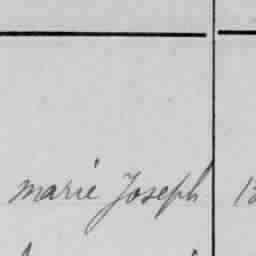 marie Joseph